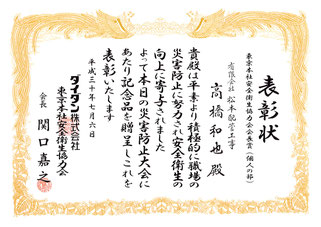 表彰状
東京本社安全衛生協力会会長賞(個人の部)
有限会社 松本配管工事
高橋和也 殿
貴殿は平素より積極的に職場の
災害防止に努力され安全衛生の
向上に寄与されました
よって本日の災害防止大会に
あたり記念品を贈呈しこれを
表彰いたします
平成三十年七月六日
ダイダン株式会社
東京本社安全衛生協力会
会長 関口嘉之